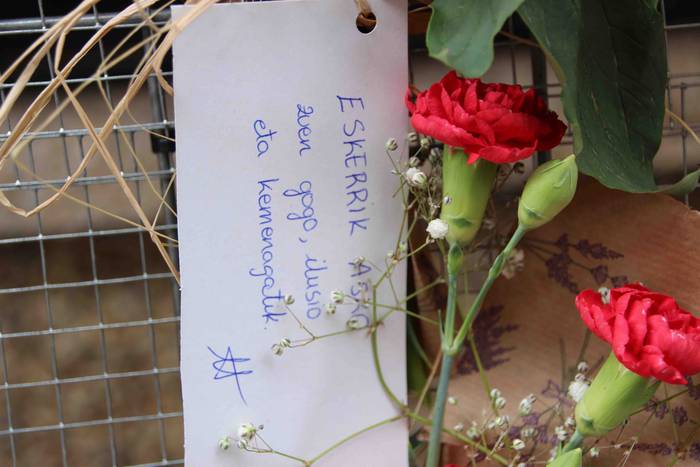 ESKERRIK ASKO
zuen gogo, ilusio
eta kemenagatik.